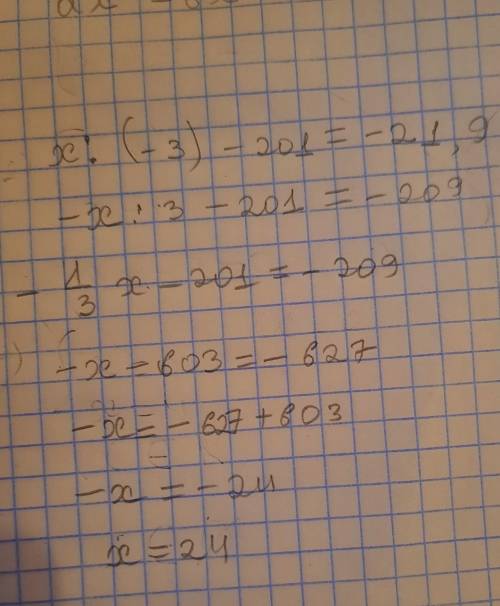 x : (-3) - 201 = -21,9
-x : 3 - 201 = -209
- 1/3 x - 201 = -209
-x - 603 = - 627
-x = - 627 + 603
-x = - 24
x = 24